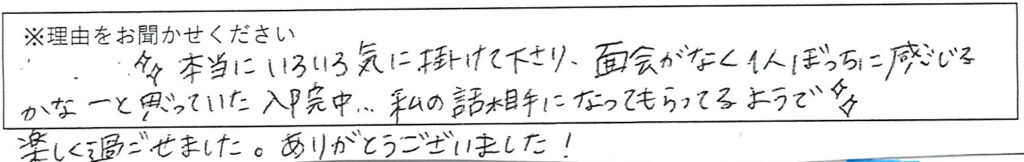 ※理由をお聞かせください
本当にいろいろ気に掛けて下さり、面会がなく1人ぼっちに感じる
かなーと思っていた入院中… 私の話相手になってもらってるようで
楽しく過ごせました。ありがとうございました!